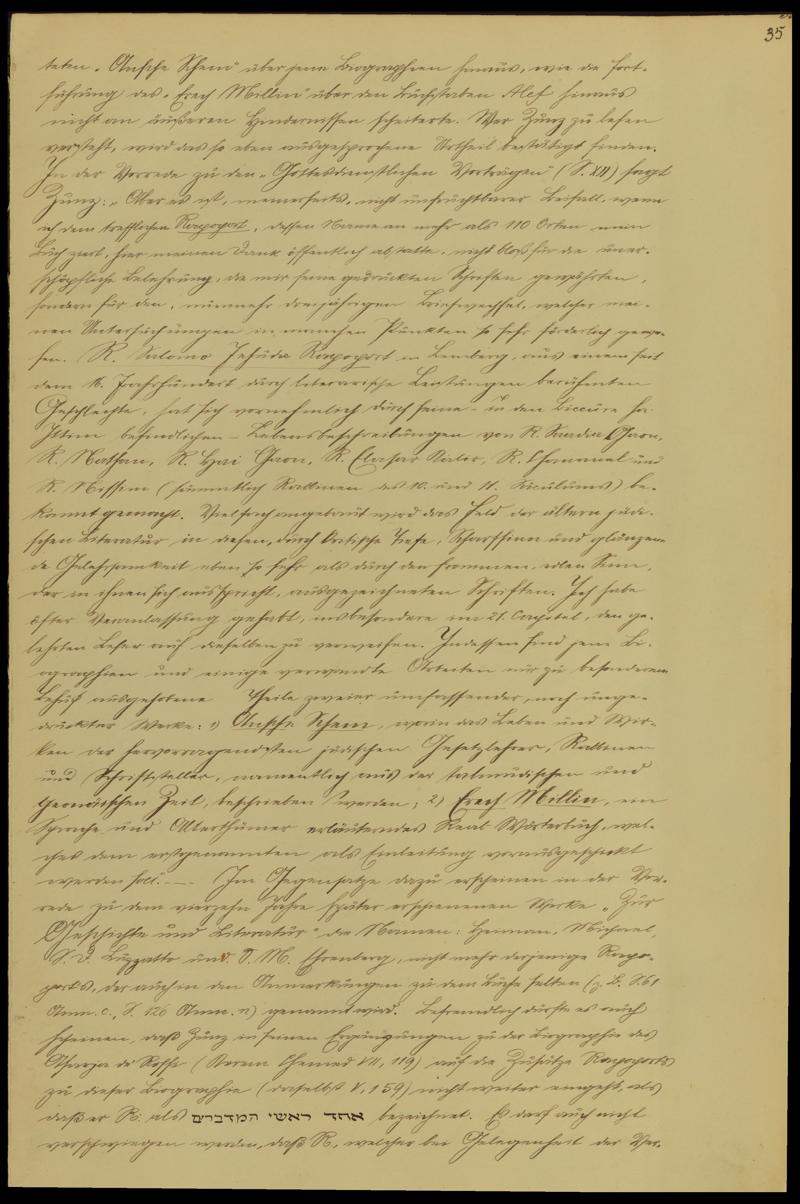 35
teten „Ansche Schem" über jene Biographien hinaus, wie die Fort-
führung des „Erech Millin" über den Buchstaben Alef hinaus
nicht an äußeren Hindernissen scheiterte. Wer Zunz zu lesen
versteht, wird das so eben ausgesprochene Urtheil bestätigt finden.
In der Vorrede zu den „Gottesdienstlichen Vorträgen" (S. XIII) sagt
Zunz: „Aber es ist, meinerseits, nicht unfruchtbarer Beifall, wenn
ich dem trefflichen Rapoport, dessen Name an mehr als 110 Orten mein
Buch ziert, hier meinen Dank öffentlich abstatte, nicht bloß für die uner-
schöpfliche Belehrung, die mir seine gedruckten Schriften gewährten,
sondern für den, nunmehr dreijährigen Briefwechsel, welcher mei-
nen Untersuchungen in manchen Punkten so sehr förderlich gewe-
sen. R. Salomo Jehuda Rapoport in Lemberg, aus einem seit
dem 16. Jahrhundert durch literarische Leistungen berühmten
Geschlechte, hat sich vornehmlich durch seine – in den Biccure ha-
Ittim befindlichen – Lebensbeschreibungen von R. Saadia Gaon,
R. Nathan, R. Hai Gaon, R. Elasar Kalir, R. Chananel und
R. Nissim (sämmtlich Rabbinen des 10. und 11. Säculums) be-
kannt gemacht. Vielfach angebaut wird das Feld der ältern jüdi-
schen Literatur in diesen, durch kritische Tiefe, Scharfsinn und glänzen-
de Gelehrsamkeit eben so sehr als durch den frommen, edlen Sinn,
der in ihnen sich ausspricht, ausgezeichneten Schriften. Ich habe
öfter Veranlassung gehabt, insbesondere im 21. Capitel, den ge-
lehrten Leser auf dieselben zu verweisen. Indessen sind jene Bi-
ographien und einige verwandte Arbeiten nur zu besonderem
Behuf ausgehobene Theile zweier umfassender, noch unge-
druckter Werke: 1) Ansche Schem, worin das Leben und Wir-
ken der hervorragendsten jüdischen Gesetzlehrer, Rabbinen
und Schriftsteller, namentlich aus der talmudischen und
geonäischen Zeit, beschrieben werden; 2) Erech Millin, ein
Sprache und Alterthümer erläuterndes Real-Wörterbuch, wel-
ches dem erstgenannten als Einleitung vorausgeschickt
werden soll. — Im Gegensatze dazu erscheinen in der Vor-
rede zu dem vierzehn Jahre später erschienenen Werke „Zur
Geschichte und Literatur" die Namen: Heiman, Michael,
S. D. Luzzatto und S. M. Ehrenberg, nicht mehr derjenige Rapo-
ports, der auch in den Anmerkungen zu dem Buche selten (z. B. S. 61
Anm. c, S. 126 Anm. n) genannt wird. Befremdlich dürfte es auch
scheinen, daß Zunz in seinen Ergänzungen zu der Biographie des
Asarja de' Rossi (Kerem Chemed VII, 119) auf die Zusätze Rapoports
zu dieser Biographie (daselbst V, 159) nicht weiter eingeht, als
daß er R. als אחד ראשי המדברים bezeichnet. Es darf auch nicht
verschwiegen werden, daß R., welcher bei Gelegenheit der Ver-